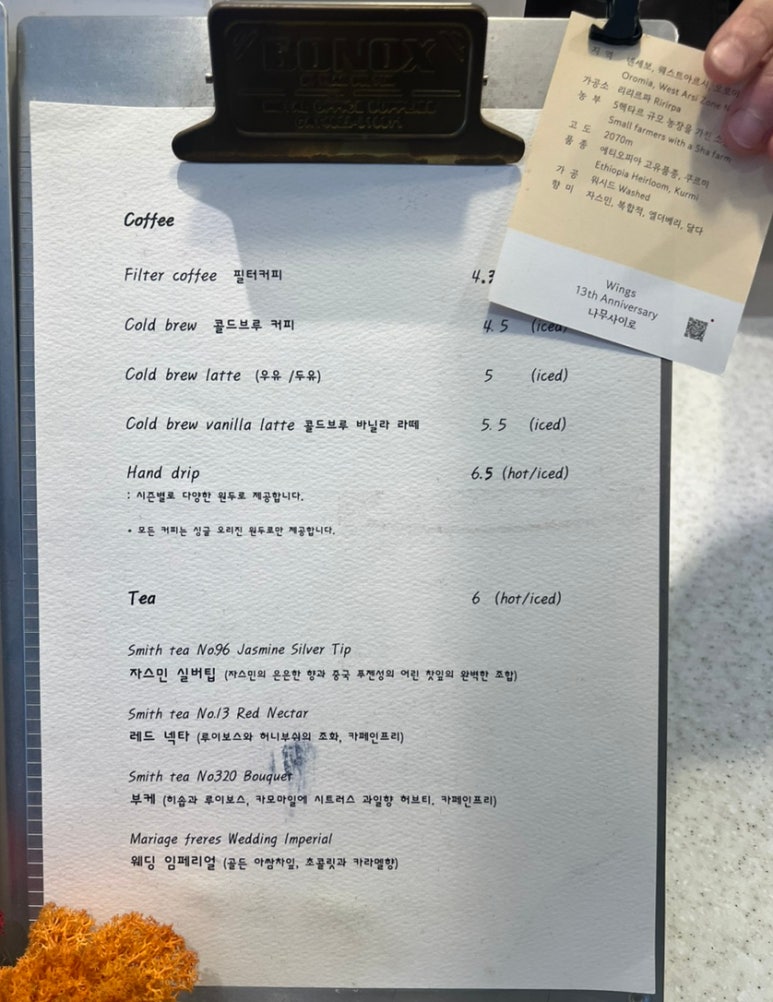 BONOX
Coffee
Filter coffee 필터커피 4.3
Cold brew 콜드브루 커피 4.5 (iced)
Cold brew latte (우유 /두유) 5 (iced)
Cold brew vanilla latte 콜드브루 바닐라 라떼 5.5 (iced)
Hand drip 6.5 (hot/iced)
: 시즌별로 다양한 원두로 제공합니다.
* 모든 커피는 싱글 오리진 원두로만 제공합니다.
Tea 6 (hot/iced)
Smith tea No96 Jasmine Silver Tip
자스민 실버팁 (자스민의 은은한 향과 중국 푸젠성의 어린 찻잎의 완벽한 조합)
Smith tea No.13 Red Nectar
레드 넥타 (루이보스와 허니부쉬의 조화, 카페인프리)
Smith tea No320 Bouquet
부케 (히솝과 루이보스, 카모마일에 시트러스 과일향 허브티, 카페인프리)
Mariage freres Wedding Imperial
웨딩 임페리얼 (골든 아쌈차잎, 초콜릿과 카라멜향)
지 역 웨스트아르시,
Oromia, West Arsi Zone
가공소 리리르파 Ririrpa
농 부 5헥타르 규모 농장을 가진
Small farmers with a 5ha farm
고 도 2070m
품 종 에티오피아 고유품종, 쿠르미
Ethiopia Heirloom, Kurmi
가 공 워시드 Washed
향 미 자스민, 복합적, 엘더베리, 달다
Wings
13th Anniversary
나무사이로